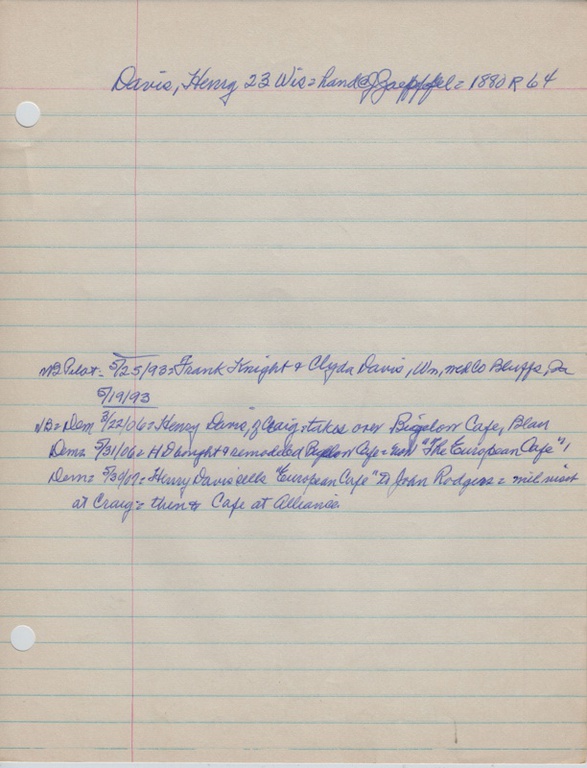 Davis, Henry 23 Wis = hand of Zaepffel = 1880 R 64
Pilot = 5/25/93 = Frank Knight & Clyda Davis, Wn, md Co Bluffs, Ia
5/19/93
NB = Dem 3/22/06 = Henry Davis, of Craig = takes over Bigelow Cafe, Blair
Dem = 5/31/06 = H D bought & remodeled Bigelow Cafe = now "The European Cafe",
Dem = 5/30/07 = Henry Davis sells "European Cafe" to John Rodgers = will visit
at Craig = then to Cafe at Alliance.